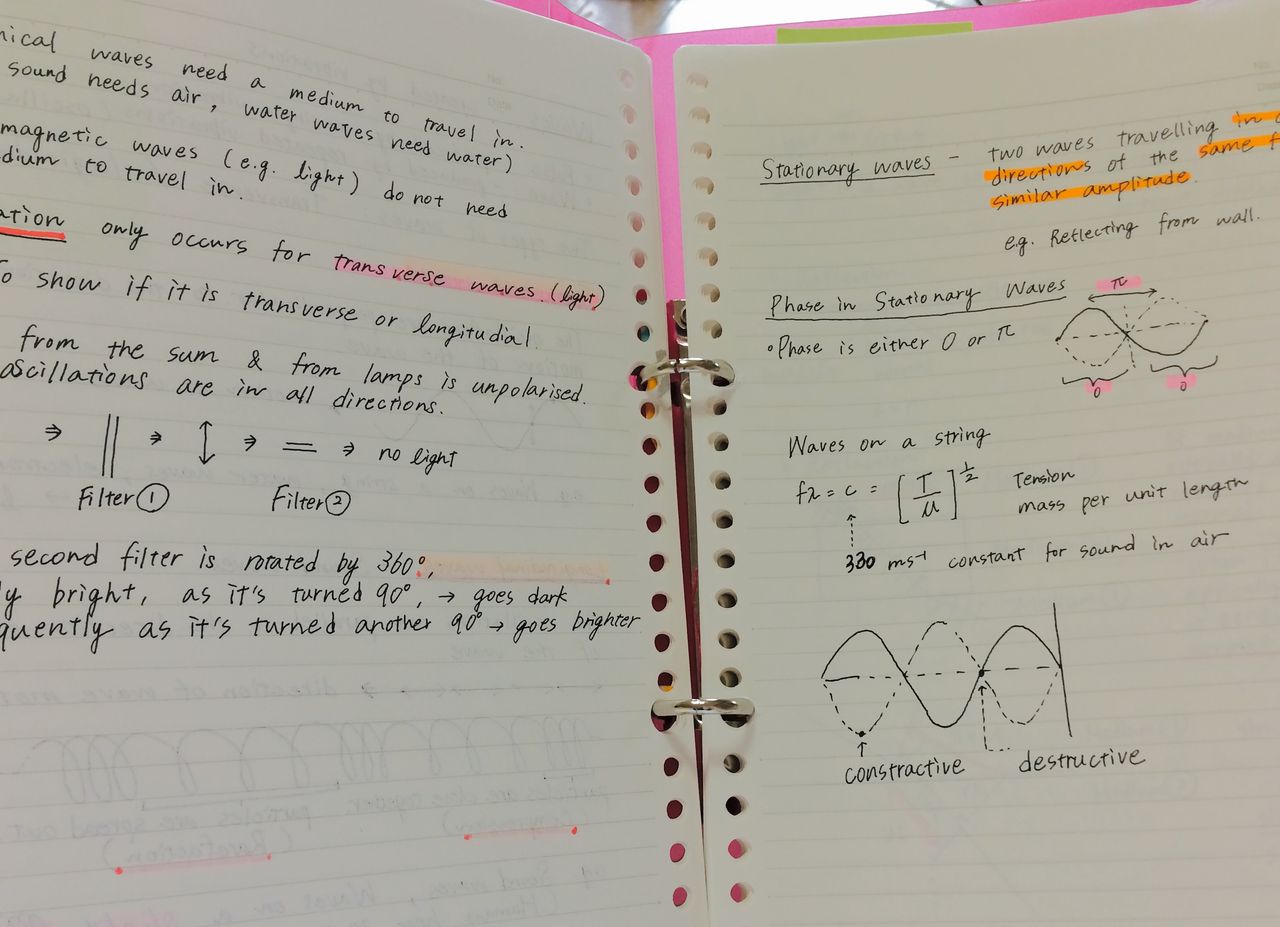 waves need a medium to travel in.
sound needs air, water waves need water)
magnetic waves (e.g. light) do not need
to travel in.
only occurs for transverse waves. (light)
To show if it is transverse or longitudial.
from the sum & from lamps is unpolarised.
oscillations are in all directions.
⇒ || ⇒ ↕ ⇒ = ⇒ no light
Filter① Filter②
second filter is rotated by 360°,
bright, as it's turned 90°, → goes dark
quently as it's turned another 90° → goes brighter
Stationary waves - two waves travelling in
directions of the same f
similar amplitude.
e.g. Reflecting from wall.
Phase in Stationary Waves
π
•Phase is either 0 or π
0 0
Waves on a string
fλ = c = [T/μ]^½ Tension
mass per unit length
330 ms⁻¹ constant for sound in air
constractive destructive